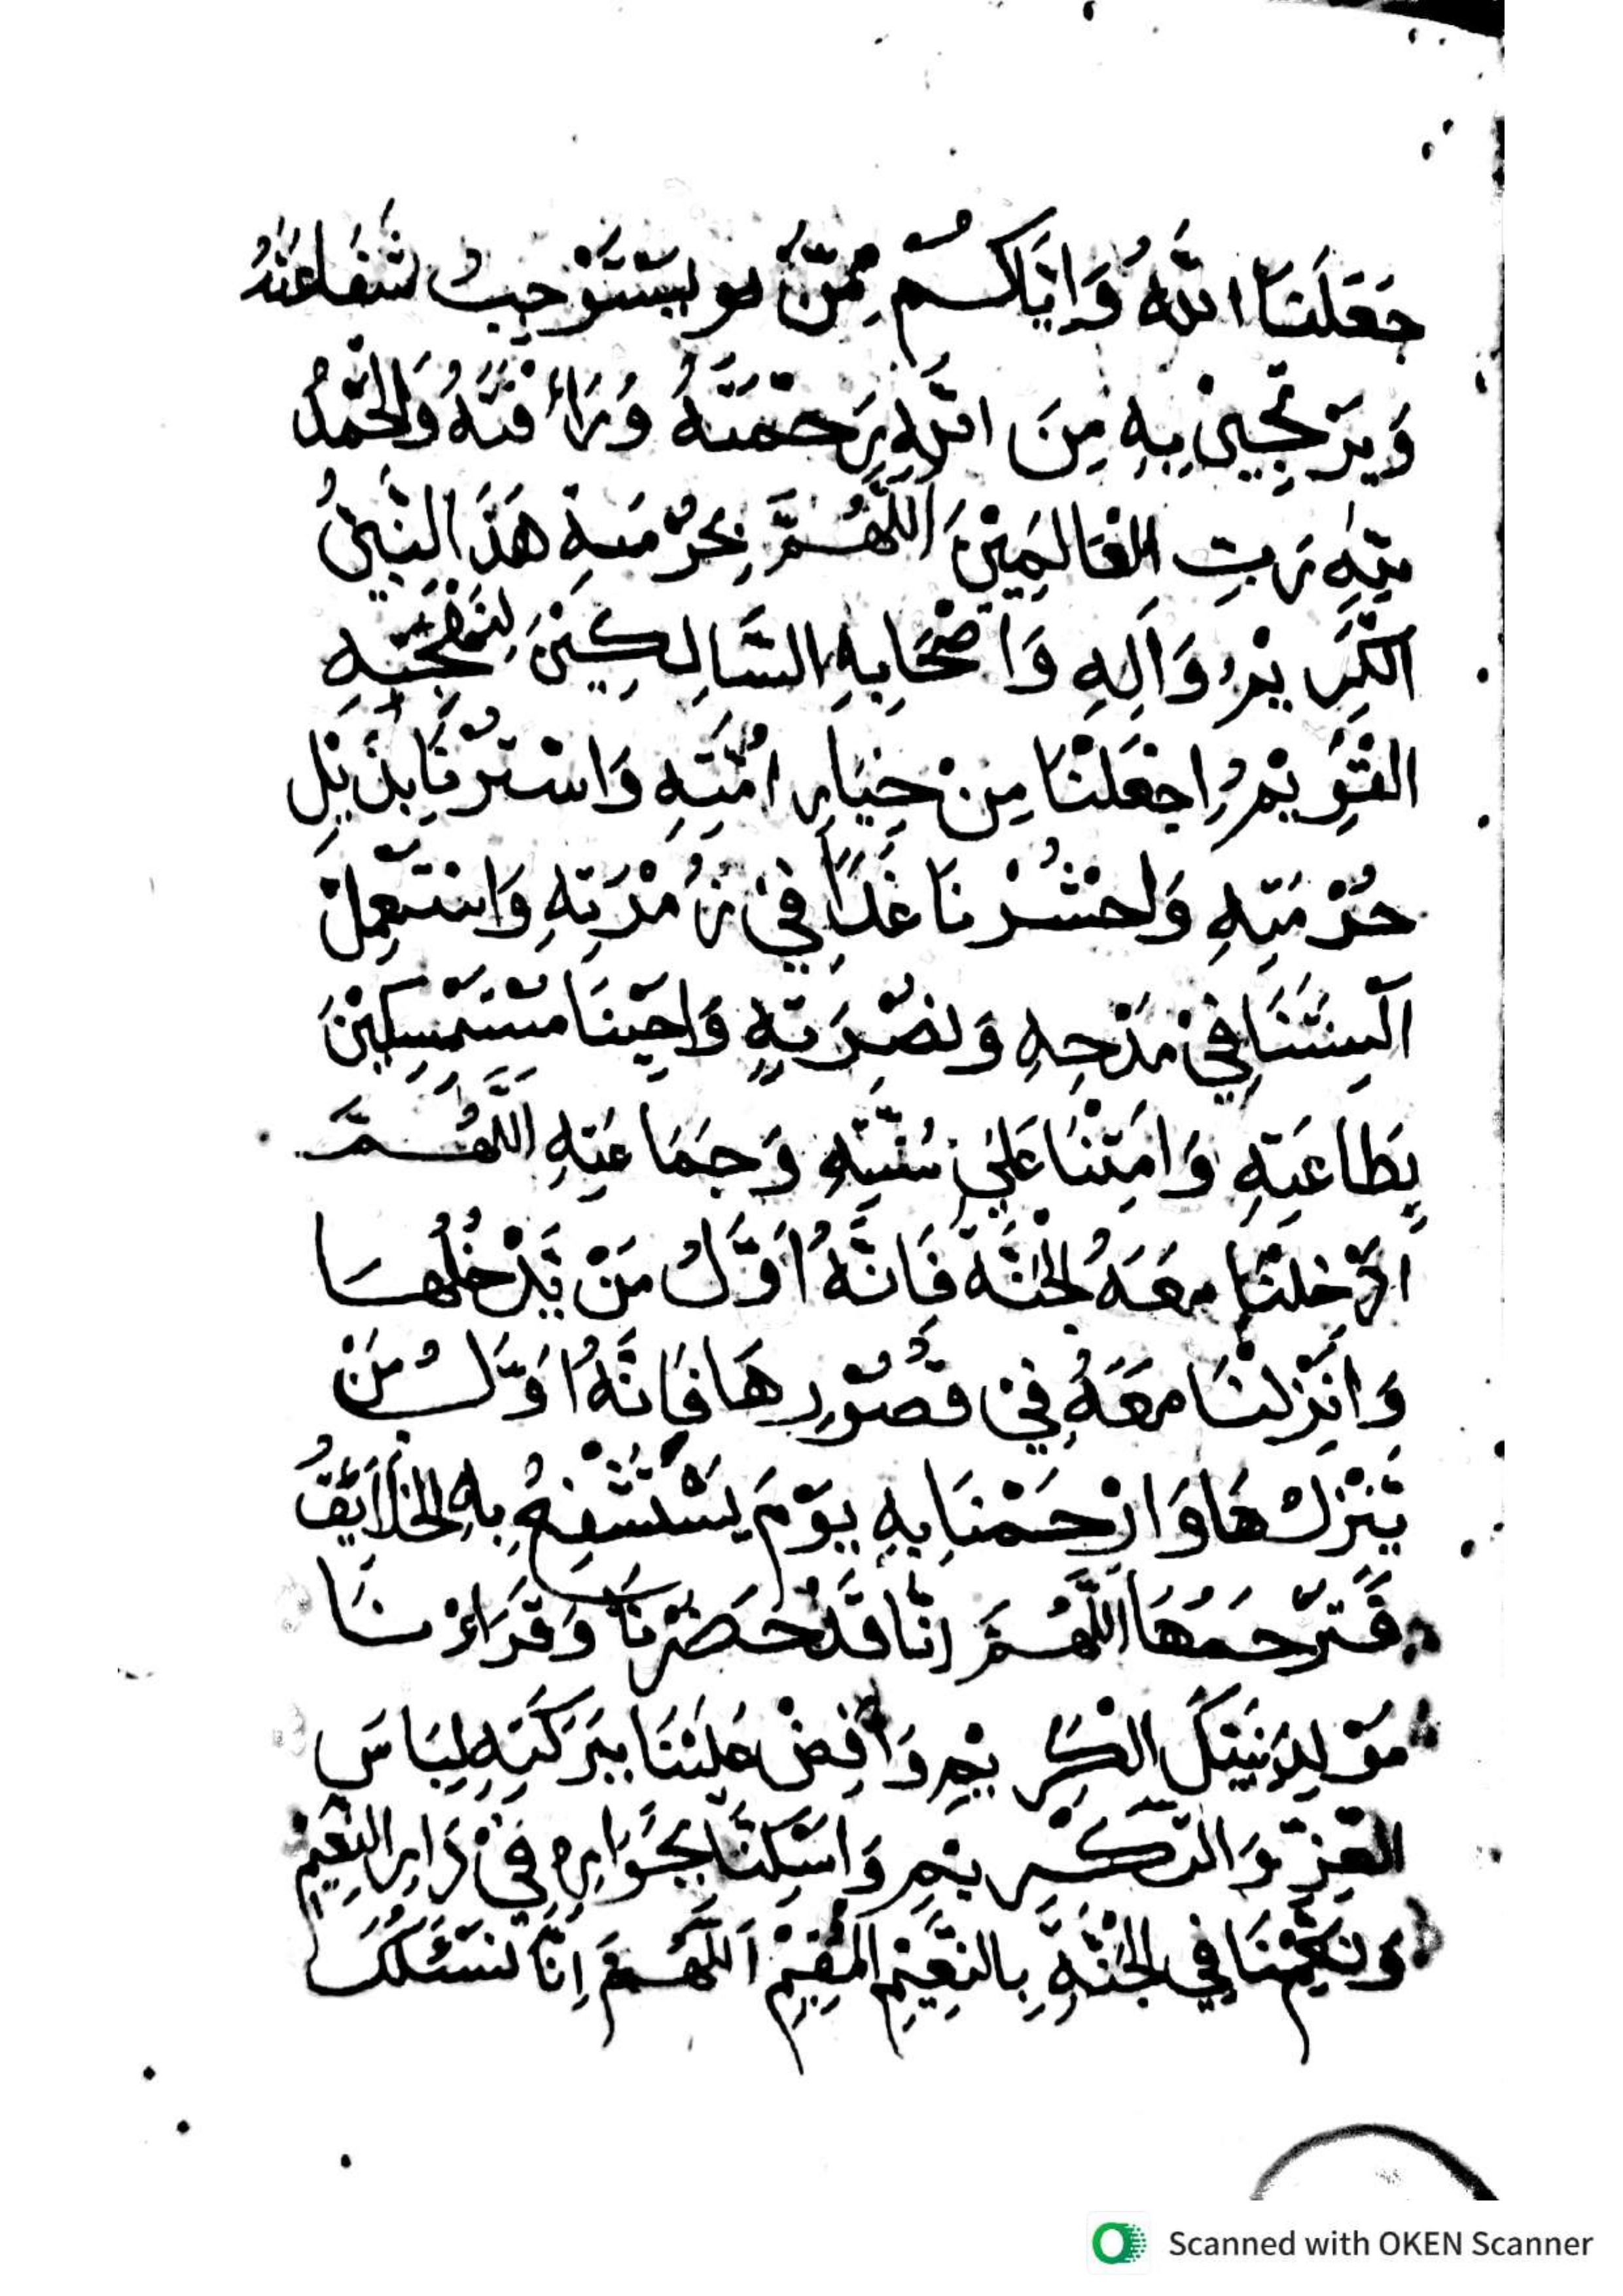 جَعَلَنَا اللّٰهُ وَاِيَّاكُمْ مِمَّنْ يَسْتَوْجِبُ شَفَاعَتَهُ
وَيَرْتَجِيْ بِهِ مِنَ اللّٰهِ رَحْمَتَهُ وَرَاْفَتَهُ وَالْحَمْدُ
لِلّٰهِ رَبِّ الْعَالَمِيْنَ اَللّٰهُمَّ بِحُرْمَةِ هَذَا النَّبِيِّ
الْكَرِيْمِ وَآلِهِ وَاَصْحَابِهِ السَّالِكِيْنَ لِنَهْجِهِ
الْقَوِيْمِ اِجْعَلْنَا مِنْ خِيَارِ اُمَّتِهِ وَاسْتُرْنَا بِذَيْلِ
حُرْمَتِهِ وَاحْشُرْنَا غَدًا فِيْ زُمْرَتِهِ وَاسْتَعْمِلْ
اَلْسِنَتَنَا فِيْ مَدْحِهِ وَنُصْرَتِهِ وَاَحْيِنَا مُسْتَمْسِكِيْنَ
بِطَاعَتِهِ وَاَمِتْنَا عَلٰى سُنَّتِهِ وَجَمَاعَتِهِ اَللّٰهُمَّ
اَدْخِلْنَا مَعَهُ الْجَنَّةَ فَاِنَّهُ اَوَّلُ مَنْ يَدْخُلُهَا
وَاَنْزِلْنَا مَعَهُ فِيْ قُصُوْرِهَا فَاِنَّهُ اَوَّلُ مَنْ
يَنْزِلُهَا وَارْحَمْنَا بِهِ يَوْمَ يَسْتَشْفِعُ بِهِ الْخَلَايِقُ
فَتَرْحَمُهَا اَللّٰهُمَّ اِنَّا قَدْ حَضَرْنَا وَقَرَاءْنَا
مَوْلِدَ نَبِيِّكَ الْكَرِيْمِ وَاَفِضْ عَلَيْنَا بِبَرَكَتِهِ لِبَاسَ
الْعِزِّ وَالتَّكْرِيْمِ وَاَسْكِنَّا بِجِوَارِهِ فِيْ دَارِ النَّعِيْمِ
وَنَعِّمْنَا فِي الْجَنَّةِ بِالنَّعِيْمِ الْمُقِيْمِ اَللّٰهُمَّ اِنَّا نَسْئَلُكَ
Scanned with OKEN Scanner